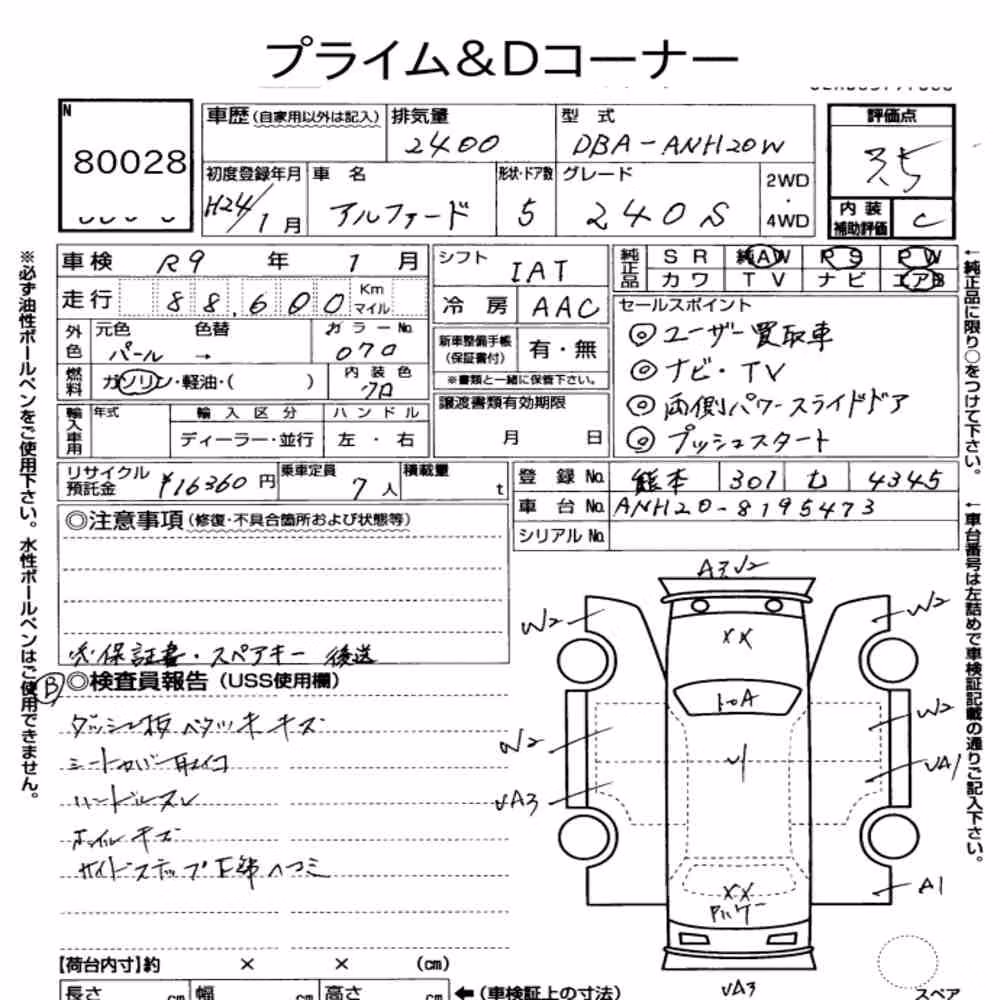 プライム&Dコーナー
N
80028
車歴 (自家用以外は記入)
排気量
2400
型 式
DBA-ANH20W
評価点
3.5
初度登録年月
H24/1月
車 名
アルファード
形状・ドア数
5
グレード
240S
2WD
・
4WD
内 装
補助評価
C
車検 R9 年 1 月
シフト IAT
純正品
SR 純AW RS PW
カワ TV ナビ エアB
走行 88,600 Km
マイル
冷 房 AAC
セールスポイント
◎ユーザー買取車
◎ナビ・TV
◎両側パワースライドドア
◎プッシュスタート
外色
元色 色替 カラーNo.
パール → 070
新車整備手帳
(保証書付)
有・無
※書類と一緒に保管下さい。
燃料
ガソリン・軽油・( )
内 装 色
クロ
譲渡書類有効期限
月 日
輸入車用
年式
輸 入 区 分
ハ ン ド ル
ディーラー・並行
左 ・ 右
リサイクル
預託金
¥16360円
乗車定員
7人
積載量
t
登 録 No. 熊本 301 む 4345
車 台 No. ANH20-8195473
シリアル No.
◎注意事項 (修復・不具合箇所および状態等)
保証書・スペアキー 後送
B
◎検査員報告 (USS使用欄)
ダッシュ板ベタツキキズ
シートカバー取イコ
ハンドルスレ
ホイルキズ
サイドステップ下錆ヘコミ
【荷台内寸】約 × × (cm)
長さ cm
幅 cm
高さ cm
←(車検証上の寸法)
A3 V2
W2
W2
XX
トロA
W2
W2
VA1
VA3
XX
A1
VA3
スペア
※必ず油性ボールペンをご使用下さい。水性ボールペンはご使用できません。
←純正品に限り○をつけて下さい。
←車台番号は左詰めで車検証記載の通りご記入下さい。